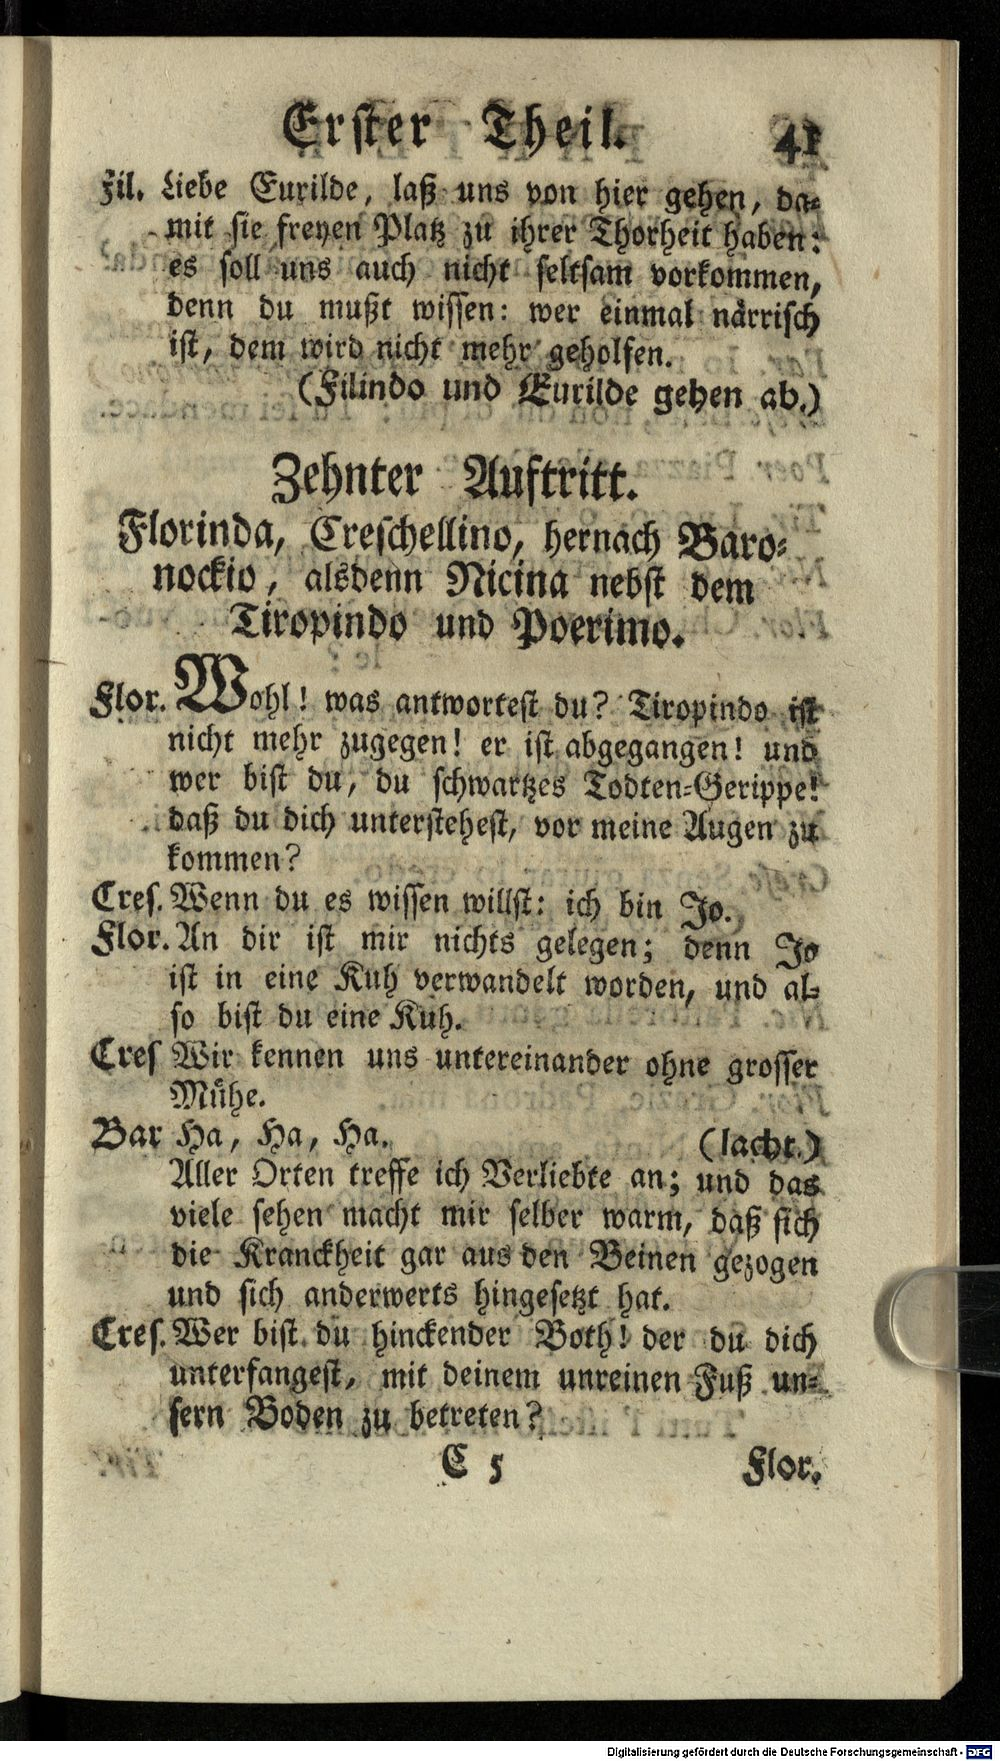 Erster Theil. 41
Fil. Liebe Eurilde, laß uns von hier gehen, da-
mit sie freyen Platz zu ihrer Thorheit haben:
es soll uns auch nicht seltsam vorkommen,
denn du mußt wissen: wer einmal närrisch
ist, dem wird nicht mehr geholfen.
(Filindo und Eurilde gehen ab.)
Zehnter Auftritt.
Florinda, Creschellino, hernach Baro-
nockio, alsdenn Nicina nebst dem
Tiropindo und Poerimo.
Flor. Wohl! was antwortest du? Tiropindo ist
nicht mehr zugegen! er ist abgegangen! und
wer bist du, du schwartzes Todten-Gerippe!
daß du dich unterstehest, vor meine Augen zu
kommen?
Cres. Wenn du es wissen willst: ich bin Jo.
Flor. An dir ist mir nichts gelegen; denn Jo
ist in eine Kuh verwandelt worden, und al-
so bist du eine Kuh.
Cres Wir kennen uns untereinander ohne grosser
Mühe.
Bar Ha, Ha, Ha. (lacht.)
Aller Orten treffe ich Verliebte an; und das
viele sehen macht mir selber warm, daß sich
die Kranckheit gar aus den Beinen gezogen
und sich anderwerts hingesetzt hat.
Cres. Wer bist du hinckender Both! der du dich
unterfangest, mit deinem unreinen Fuß un-
sern Boden zu betreten?
C 5 Flor.
Digitalisierung gefördert durch die Deutsche Forschungsgemeinschaft - DFG